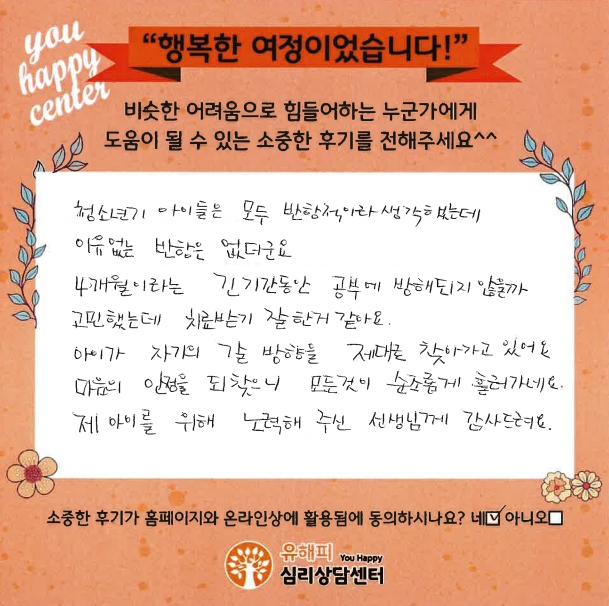 you
happy
center
“행복한 여정이었습니다!”
비슷한 어려움으로 힘들어하는 누군가에게
도움이 될 수 있는 소중한 후기를 전해주세요^^
청소년기 아이들은 모두 반항적이라 생각했는데
이유없는 반항은 없더군요
4개월이라는 긴 기간동안 공부에 방해되지 않을까
고민했는데 치료받기 잘한거 같아요.
아이가 자기의 갈 방향을 제대로 찾아가고 있어요
마음의 안정을 되찾으니 모든것이 순조롭게 흘러가네요.
제 아이를 위해 노력해 주신 선생님께 감사드려요.
소중한 후기가 홈페이지와 온라인상에 활용됨에 동의하시나요? 네☑ 아니오☐
유해피 You Happy
심리상담센터